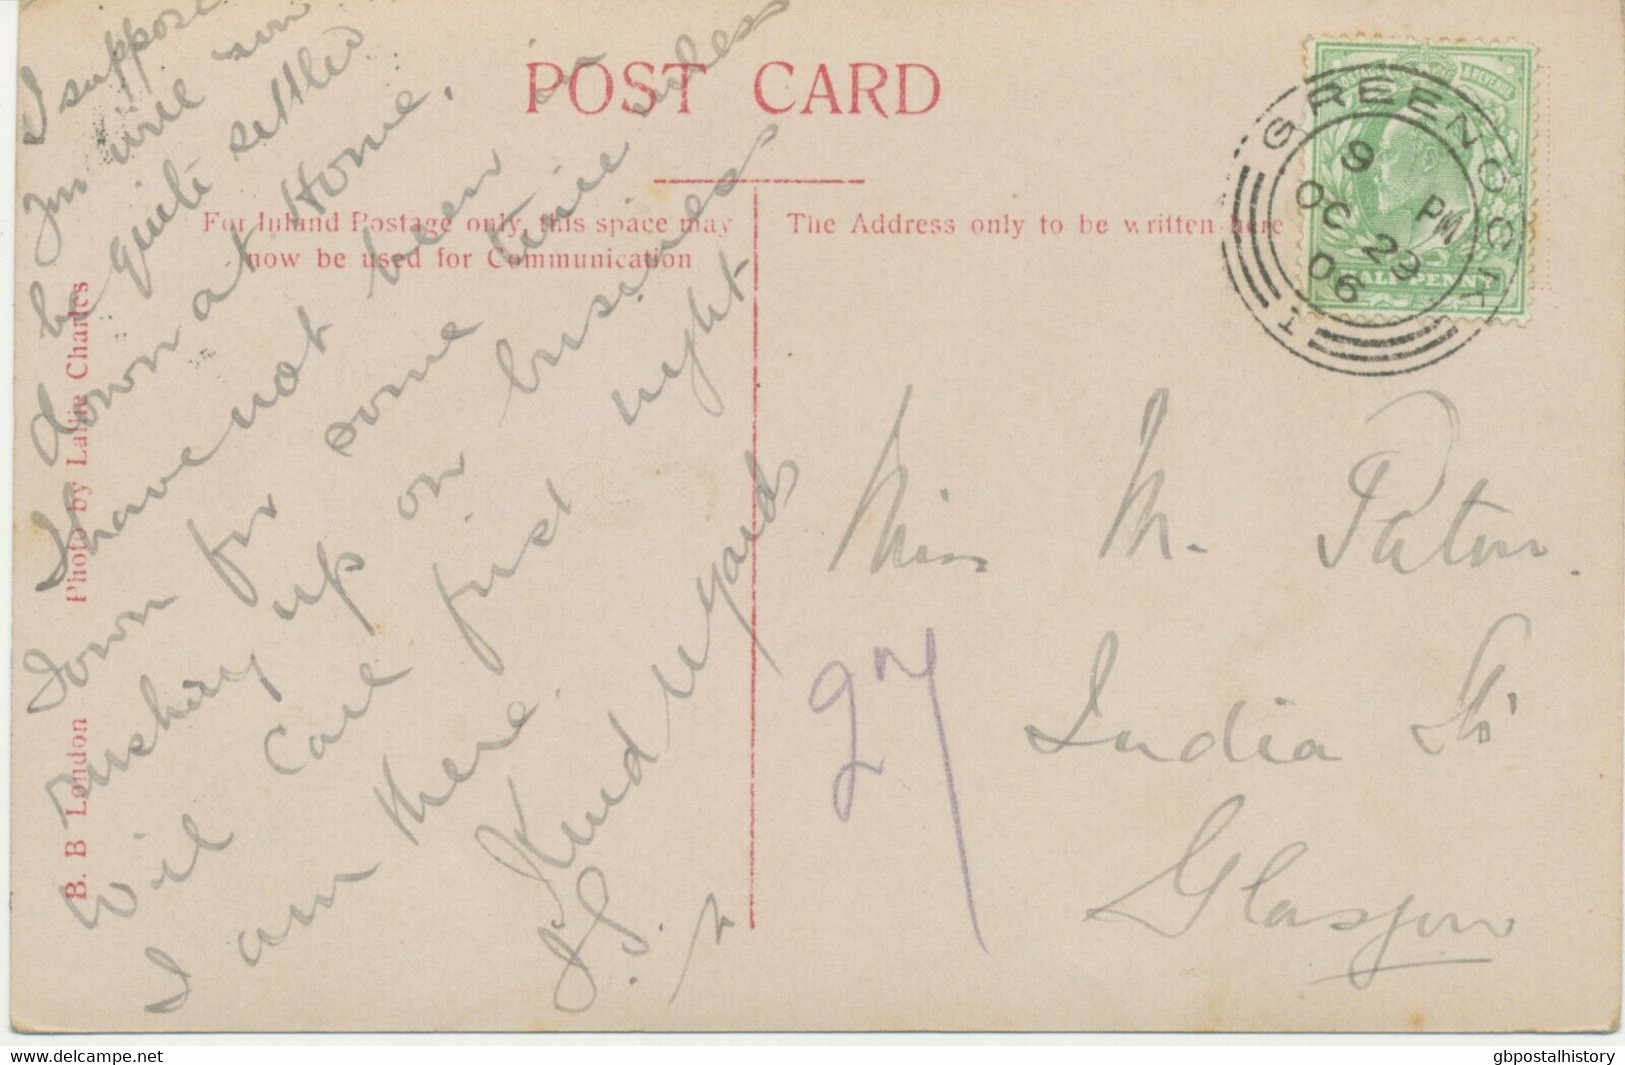 POST CARD
For Inland Postage only, this space may
now be used for Communication
The Address only to be written here
B. B London Photo by Lallie Charles
I suppose
you will soon
be quite settled
down at Home.
I have not been
down for some time unless
rushing up on business
will call first night
I am there.
Kind regards
J. S.
Miss M. Paton.
27
India St.
Glasgow
GREENOCK
9 PM
OC 29
06
1
POSTAGE & REVENUE
HALFPENNY
www.delcampe.net
gbpostalhistory